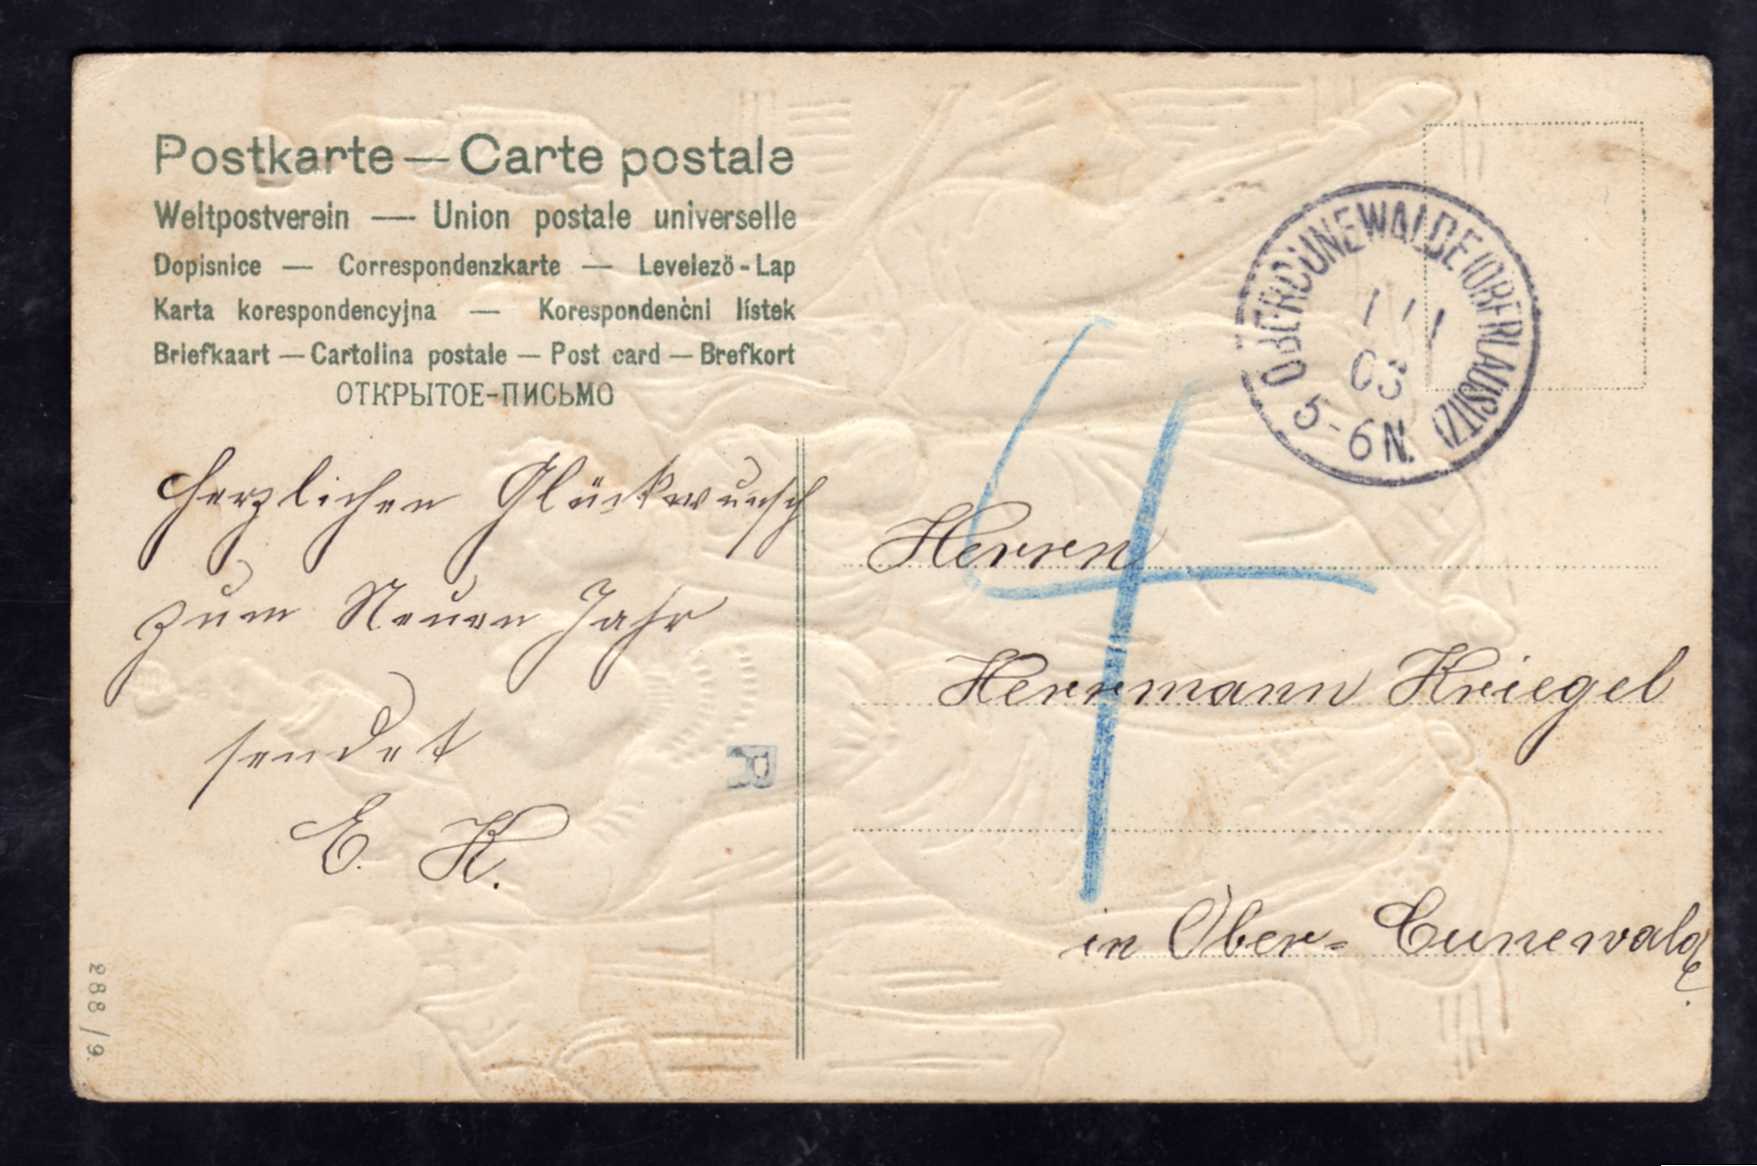 Postkarte — Carte postale
Weltpostverein — Union postale universelle
Dopisnice — Correspondenzkarte — Levelező-Lap
Karta korespondencyjna — Korespondenčni lístek
Briefkaart — Cartolina postale — Post card — Brefkort
ОТКРЫТОЕ-ПИСЬМО
OBERCUNEWALDE (OBERLAUSITZ)
1 1
03
5-6N.
4
Herzlichen Glückwunsch
zum Neuen Jahr
sendet
E. K.
R
288/9.
Herren
Herrmann Kriegel
in Ober-Cunewalde.